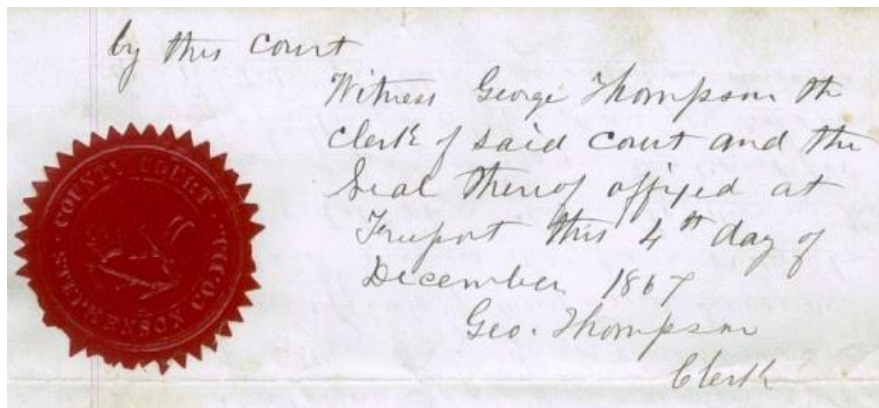 by this court
Witness George Thompson the
Clerk of said court and the
Seal thereof affixed at
Freeport this 4th day of
December 1867
Geo. Thompson
Clerk
COUNTY COURT · STEPHENSON CO. ILL.